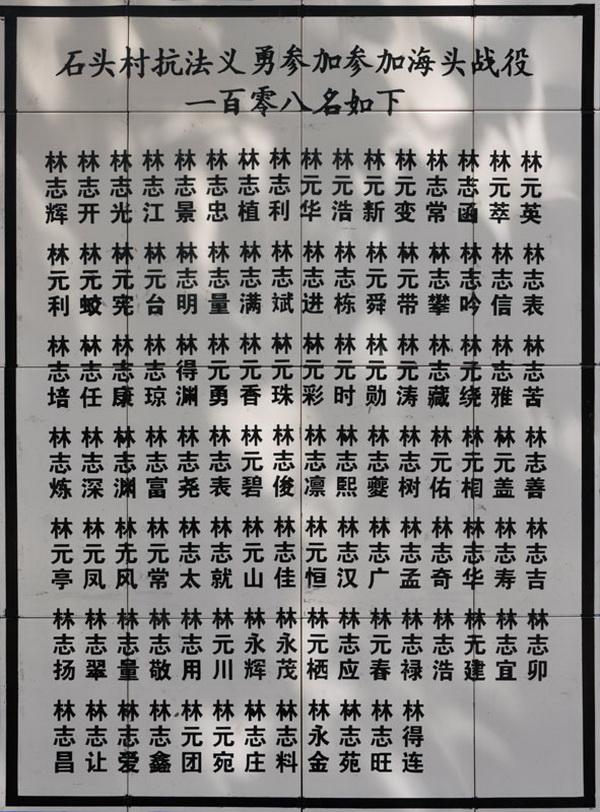 石头村抗法义勇参加参加海头战役
一百零八名如下
林志辉 林志开 林志光 林志江 林志景 林志忠 林志植 林志利 林元华 林元浩 林元新 林元变 林志常 林志函 林元萃 林元英
林元利 林元蛟 林元宪 林元台 林志明 林志量 林志满 林志斌 林志进 林志栋 林元舜 林元带 林志攀 林志吟 林志信 林志表
林志培 林志任 林志康 林志琼 林得渊 林元勇 林元香 林元珠 林元彩 林元时 林元勋 林元涛 林志藏 林元绕 林志雅 林志苦
林志炼 林志深 林志渊 林志富 林志尧 林志表 林元碧 林志俊 林志凛 林志熙 林志夔 林志树 林元佑 林元相 林元盖 林志善
林元亭 林元凤 林元风 林元常 林志太 林志就 林元山 林志佳 林元恒 林志汉 林志广 林志孟 林志奇 林志华 林志寿 林志吉
林志扬 林志翠 林志量 林志敬 林志用 林元川 林永辉 林永茂 林元栖 林志应 林元春 林志禄 林志浩 林元建 林志宜 林志卯
林志昌 林志让 林志爱 林志鑫 林元团 林元宛 林志庄 林志料 林永金 林志苑 林志旺 林得连